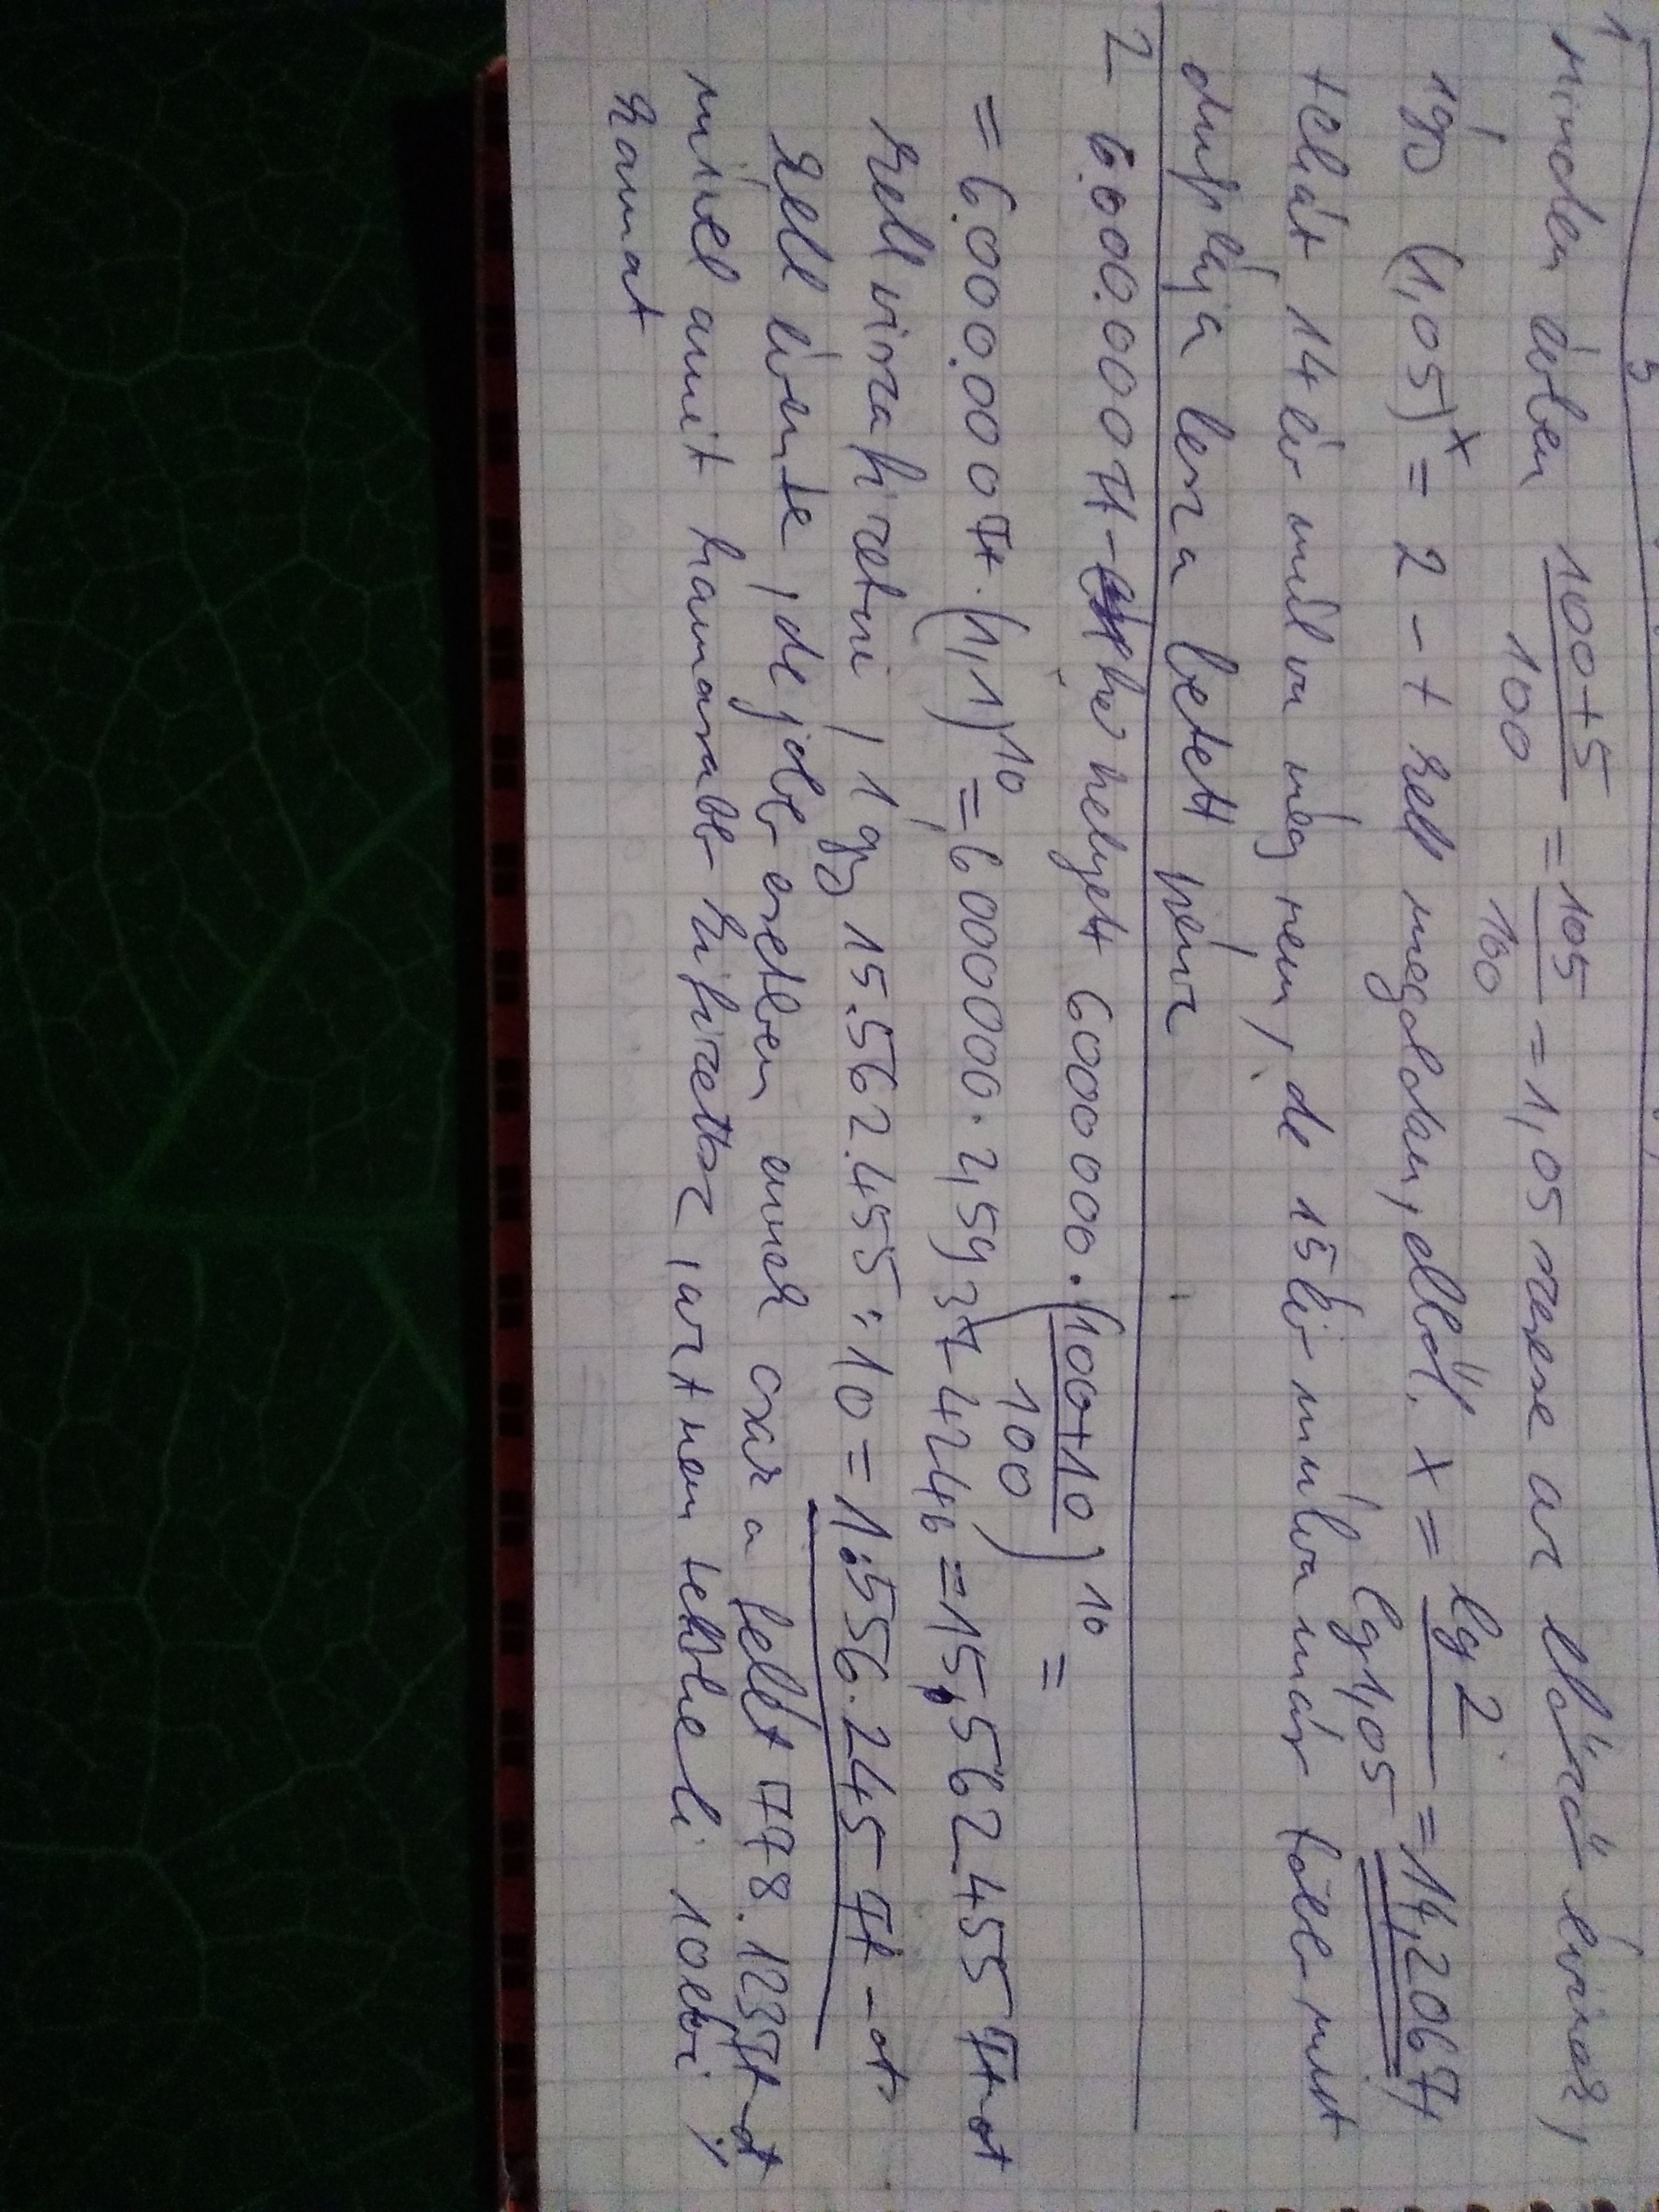 1
minden évben 100+5/100 = 105/100 = 1,05 része az előző évinek,
így (1,05)^x = 2 -t kell megoldani, ebből x = lg 2/lg 1,05 = 14,2067,
tehát 14 év múlva még nem, de 15 év múlva már több mint
duplája lesz a betett pénz
2 6.000.000 Ft- helyett 6000000·(100+10/100)^10 =
= 6.000.000 Ft·(1,1)^10 = 6000000·2,5937424246 = 15.562.455 Ft-ot
kell visszafizetni, így 15.562.455:10 = 1.556.245 Ft-ot
kell évente, de jobb esetben ennek csak a felét 778.123 Ft-ot
mivel amit hamarabb kifizettsz, azt nem terheli 10 évi
kamat